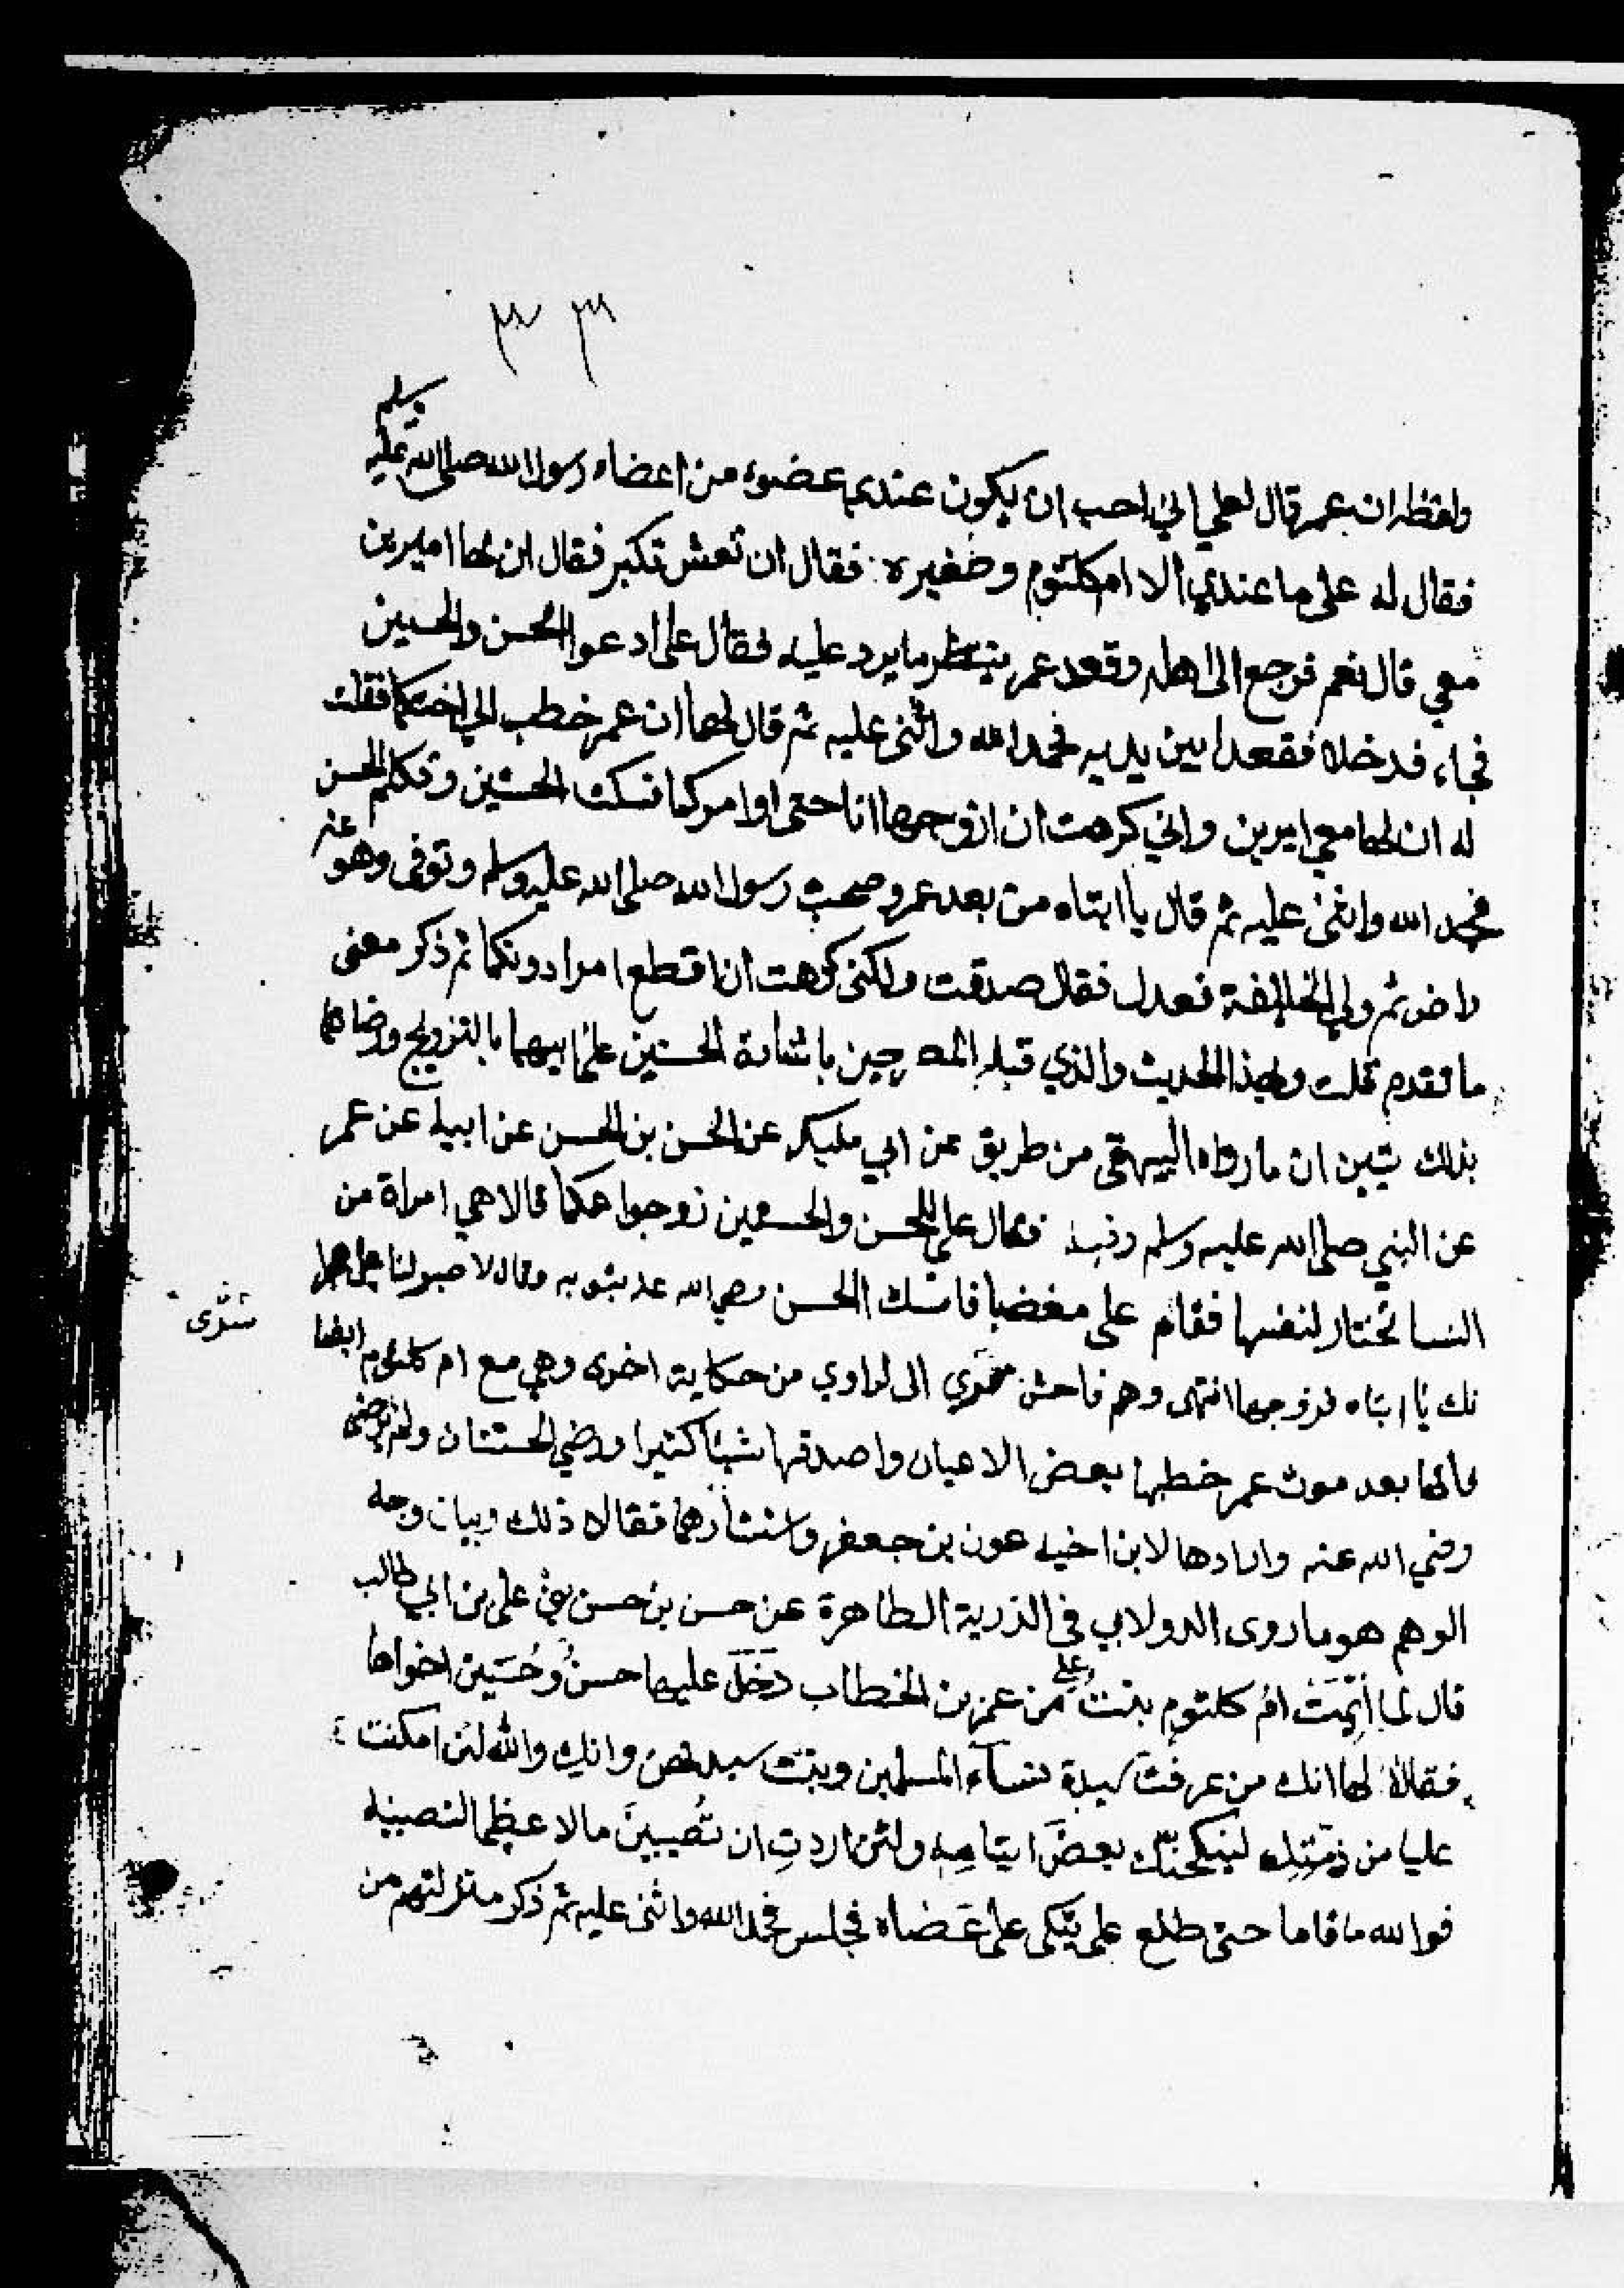 ٣٣ ٣٣
ولفظه ان عمر قال لعلي اني احب ان يكون عندي عضوء من اعضاء رسول الله صلى الله عليه وسلم
فقال له على ما عندي الا ام كلثوم وصغيره فقال ان تعش تكبر فقال ان لها اميرين
معي قال نعم فرجع الى اهله وقعد عمر ينتظر ما يرد عليه فقال على ادعوا الحسن والحسين
فجاء فدخلا فقعدا بين يديه فحمد الله واثنى عليه ثم قال لهما ان عمر خطب الي اختكما فقلت
له ان لها معي اميرين واني كرهت ان ازوجها اناحتى اوامركما فسكت الحسين وتكلم الحسن
فحمد الله واثنى عليه ثم قال يا ابتاه من بعد عمر وصحب رسول الله صلى الله عليه وسلم وتوفى وهو عنه
راض ثم ولي الخلافة فعدل فقال صدقت ولكني كرهت ان اقطع امرا دونكما ثم ذكر معنى
ما تقدم قلت وبهذا الحديث والذي قبله باشارة الحسنين على ابيهما بالتزويج ورضاهما
بذلك تبين ان ما رواه البيهقى من طريق عن ابي مليكه عن الحسن بن الحسن عن ابيه عن عمر
عن النبي صلى الله عليه وسلم وفيه فقال على للحسن والحسين زوجوا عمكما فقالا هي امراة من
النسا تختار لنفسها فقام على مغضبا فامسك الحسن رضي الله عنه بثوبه وقال لا صبر لنا على هجرا
نك يا ابتاه فزوجها انتهى وهم فاحش الى الراوي من حكاية اخرى وهي مع ام كلثوم ايضا
سرى
فانها بعد موت عمر خطبها بعض الاعيان واصدقها شيئا كثيرا ورضي الحسنان ولم يرضى
رضي الله عنه وارادها لابن اخيه عون بن جعفر واستشارهما فقالا ذلك وبيان وجه
الوهم هو ما روى الدولابي في الذرية الطاهرة عن حسن بن حسن بن على بن ابي طالب
قال لما أيّمت ام كلثوم بنت علي من عمر بن الخطاب دخل عليها حسن وحسين اخواها
فقالا لها انك من عرفت سيدة نساء المسلمين وبنت سيدتهن وانك والله لئن امكنت
عليا من ذمتك لينكحنك بعض ايتامه ولئن اردت ان تصيبين مالا عظيما لتصيبنه
فوالله ما قاما حتى طلع على يتكى على عصاه فجلس فحمد الله واثنى عليه ثم ذكر منزلتهم من